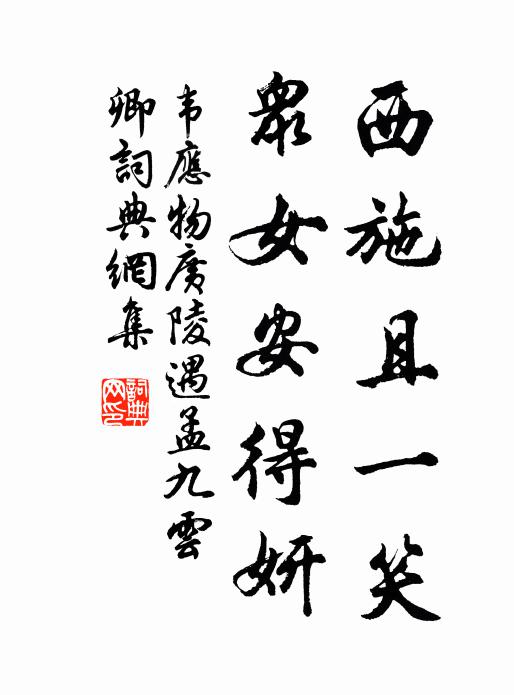 西施且一笑
眾女安得妍
韦應物廣陵遇孟九雲
卿詞典網集
詞典网印